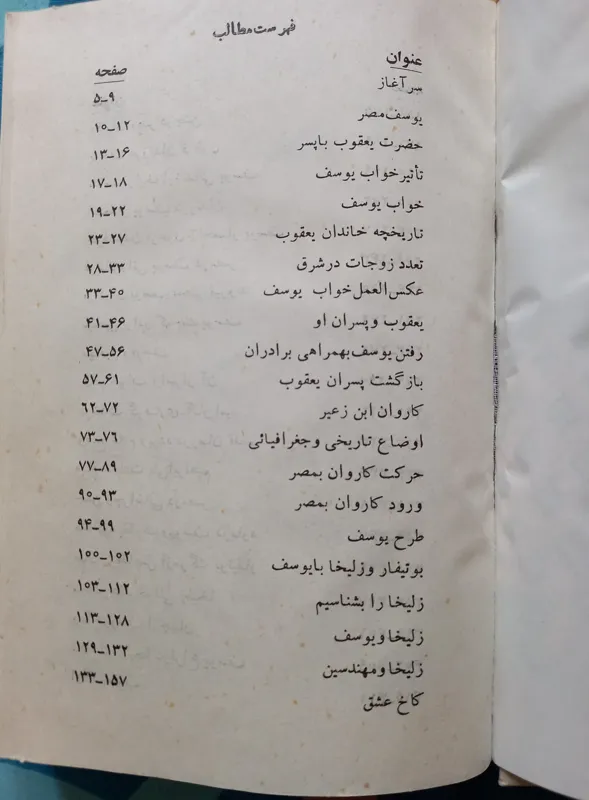 فهرست مطالب
عنوان صفحه
سرآغاز ۵_۹
یوسف مصر ۱۰_۱۲
حضرت یعقوب باپسر ۱۳_۱۶
تأثیر خواب یوسف ۱۷_۱۸
خواب یوسف ۱۹_۲۲
تاریخچه خاندان یعقوب ۲۳_۲۷
تعدد زوجات درشرق ۲۸_۳۳
عکس‌العمل خواب یوسف ۳۳_۴۰
یعقوب و پسران او ۴۱_۴۶
رفتن یوسف بهمراهی برادران ۴۷_۵۶
بازگشت پسران یعقوب ۵۷_۶۱
کاروان ابن زعیر ۶۲_۷۲
اوضاع تاریخی وجغرافیائی ۷۳_۷۶
حرکت کاروان بمصر ۷۷_۸۹
ورود کاروان بمصر ۹۰_۹۳
طرح یوسف ۹۴_۹۹
بوتیفار وزلیخا بایوسف ۱۰۰_۱۰۲
زلیخا را بشناسیم ۱۰۳_۱۱۲
زلیخا ویوسف ۱۱۳_۱۲۸
زلیخا ومهندسین ۱۲۹_۱۳۲
کاخ عشق ۱۳۳_۱۵۷